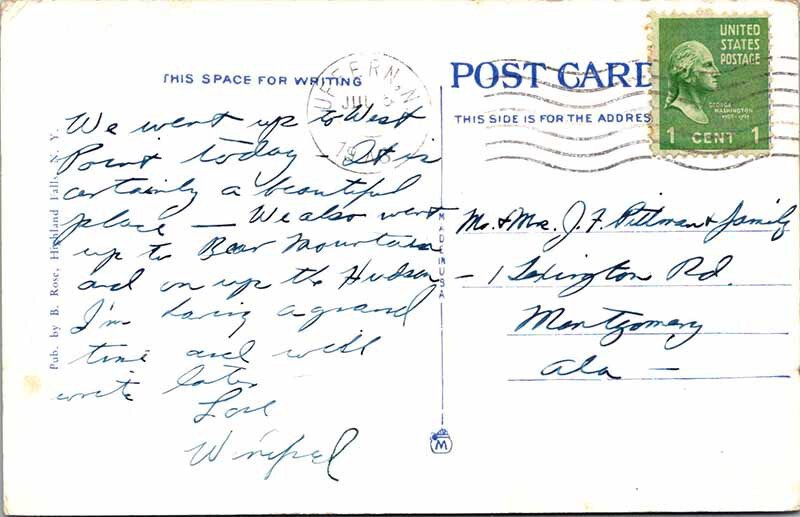 THIS SPACE FOR WRITING
We went up to West
Point today – It is
certainly a beautiful
place – We also went
up to Bear Mountain
and on up the Hudson
I'm having a grand
time and will
write later
Love
Pub. by B. Rose, Highland Falls, N. Y.
MADE IN USA
M
POST CARD
THIS SIDE IS FOR THE ADDRES
UFFERN, N
JUL
UNITED
STATES
POSTAGE
GEORGE
WASHINGTON
1 CENT 1
Mr. & Mrs. J. F. Pittman & family
– 1 Lexington Rd.
Montgomery
Ala –